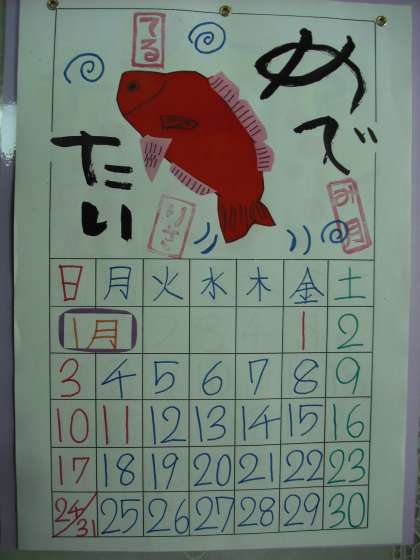 めで
たい
てる
お正月
日 月 火 水 木 金 土
1月 1 2
3 4 5 6 7 8 9
10 11 12 13 14 15 16
17 18 19 20 21 22 23
24/31 25 26 27 28 29 30